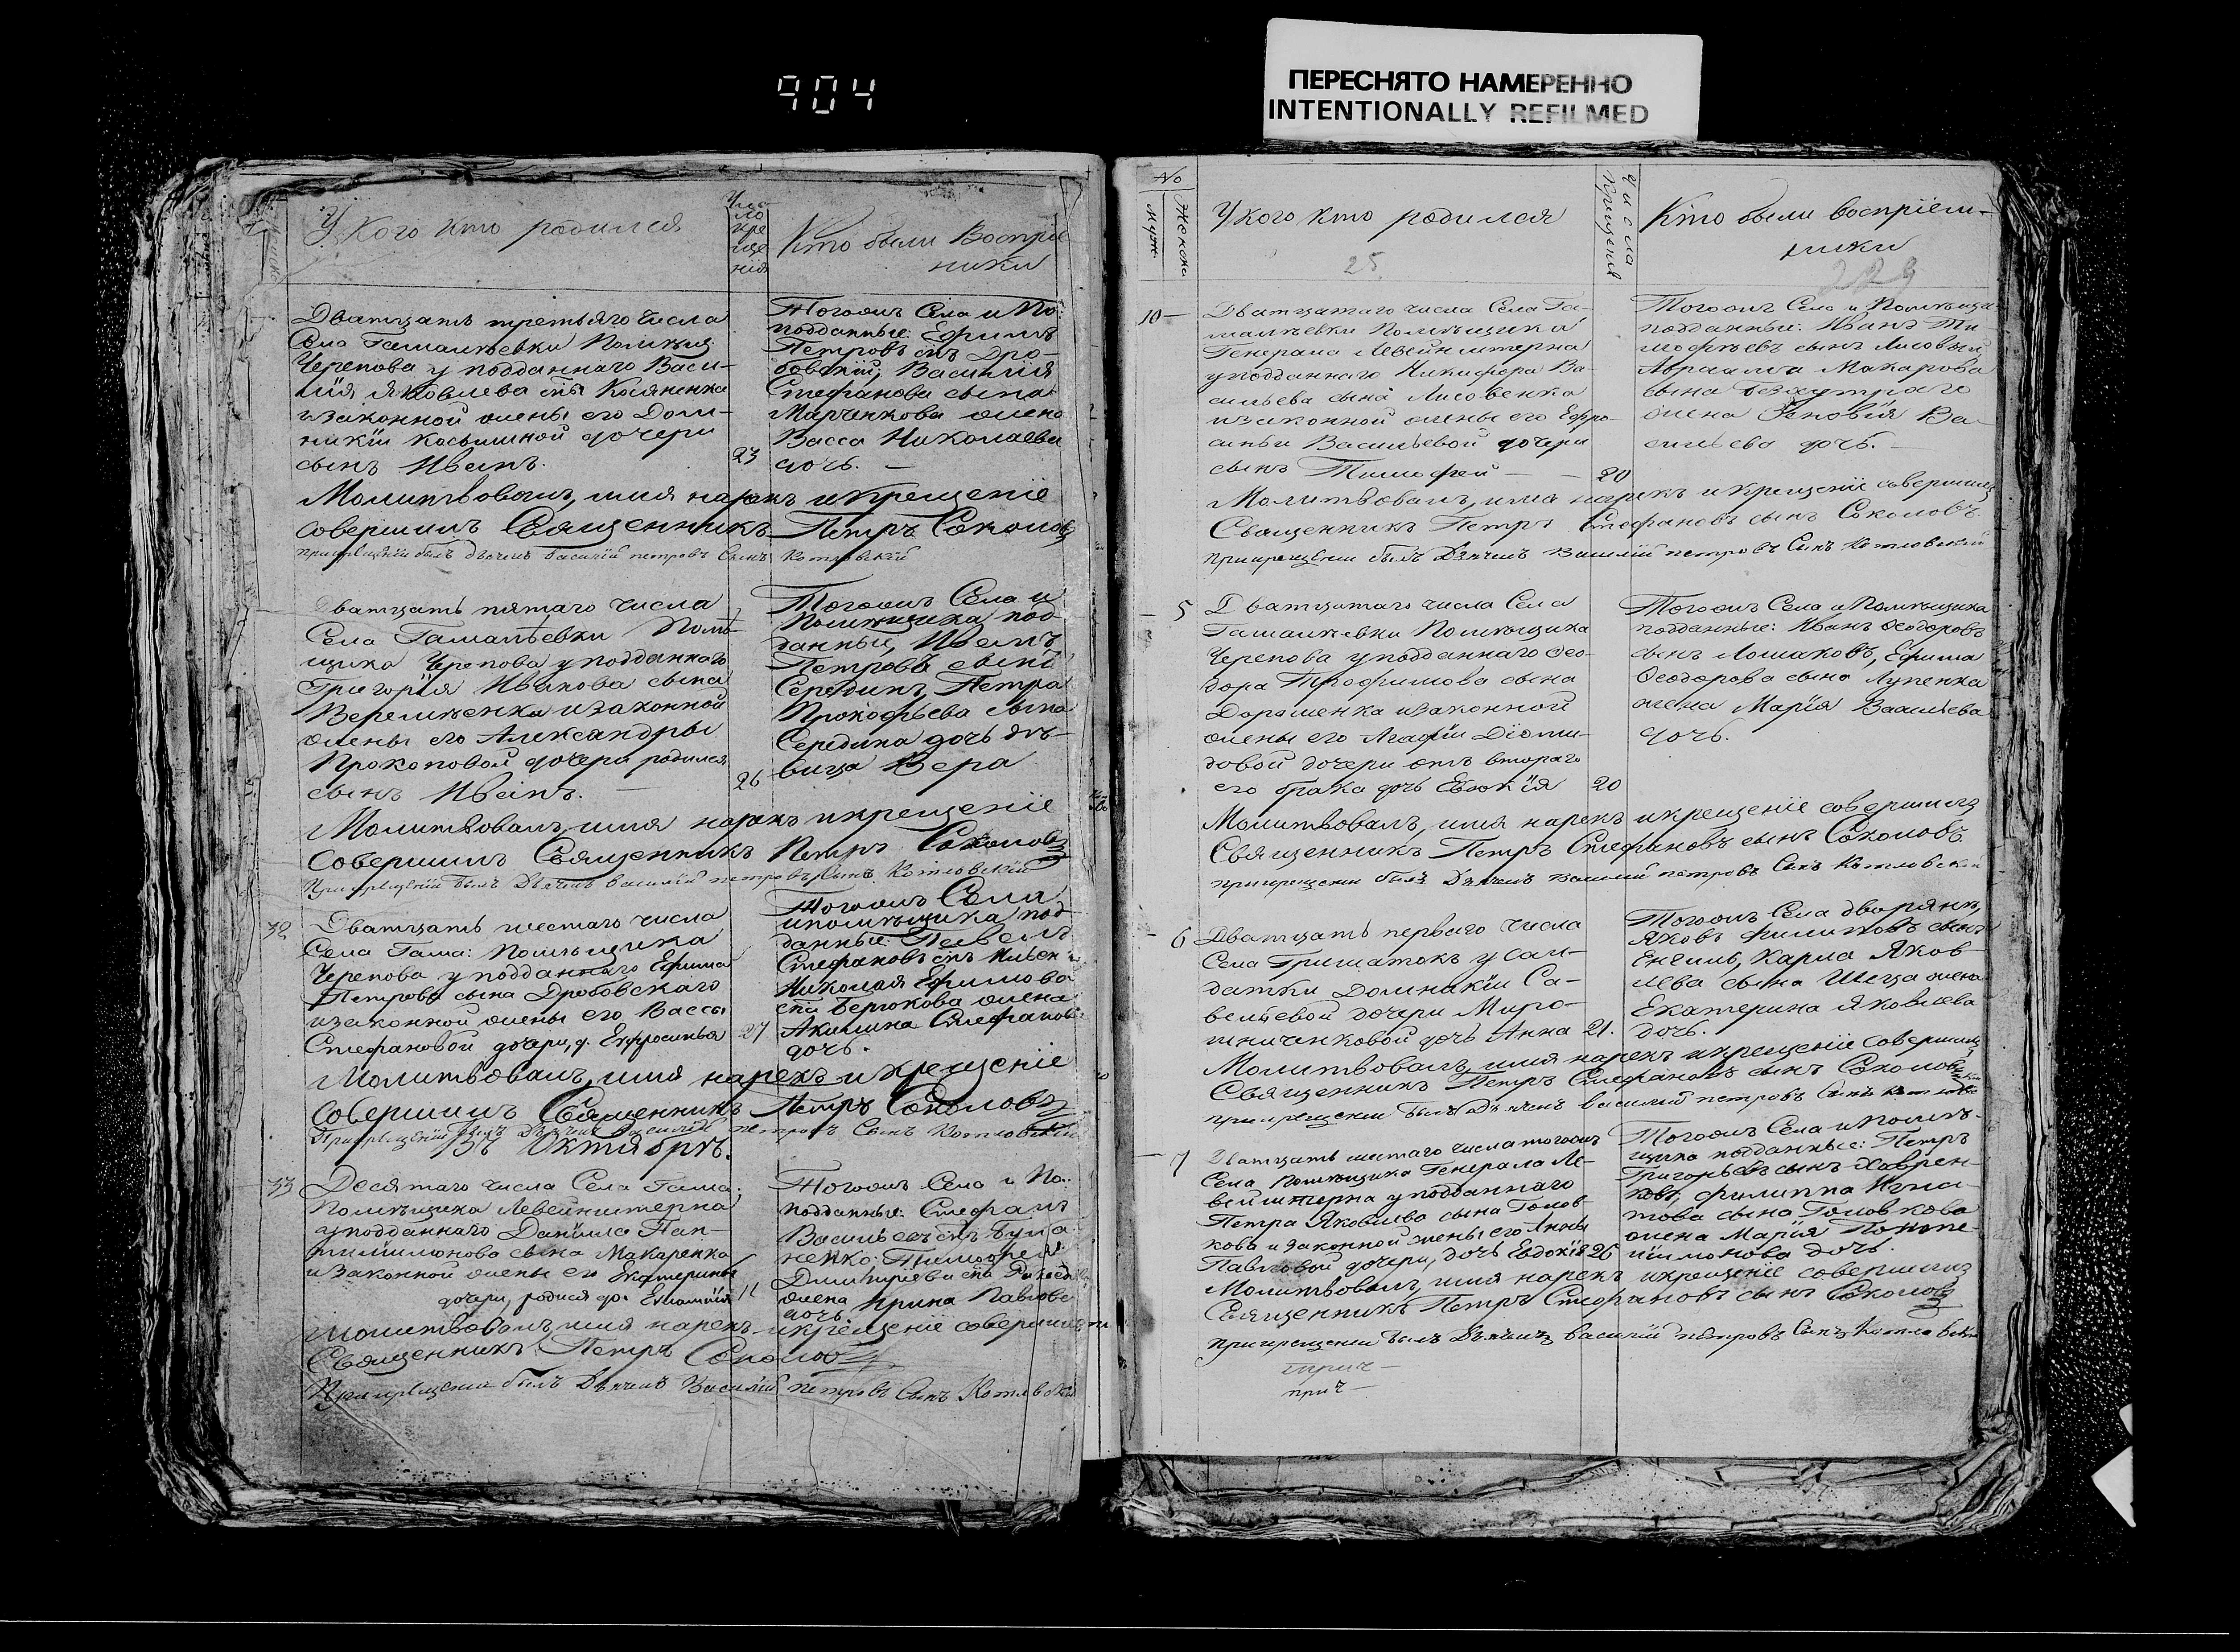 904
ПЕРЕСНЯТО НАМЕРЕННО
INTENTIONALLY REFILMED
У Кого кто родился
Число крещенія
Кто были Воспріе
ники
Дватцать третьяго числа
Села Гамалѣевки Помѣщ:
Черепова у подданнаго Васи-
лія Яковлева сна Косяненка
изаконной жены его Доми-
никіи Косьминой дочери
сынъ Иванъ.
23
Тогожъ Села и По:
подданные: Ефимъ
Петровъ снъ Дро-
бовскій, Василія
Стефанова сына
Марченкова жена
Васса Николаева
дочь. —
Молитвовалъ, имя нарекъ икрещеніе
совершилъ Священникъ Петръ Соколовъ
Прикрещеніи былъ Дьячекъ Василій петровъ Сынъ Котловскій
Дватцать пятаго числа
Села Гамалѣевки Помѣ-
щика Черепова у подданнаго
Григорія Иванова сына
Веремѣенка изаконной
жены его Александры
Прокоповой дочери родился
сынъ Иванъ. —
26
Тогожъ Села и
Помѣщика под-
данный, Иванъ
Петровъ сынъ
Серединъ, Петра
Прокофьева сына
Середина дочь дѣ-
вица Вера
Молитвовалъ, имя нарекъ икрещеніе
Совершилъ Священникъ Петръ Соколовъ
Прикрещеніи былъ Дьячекъ василій петровъ Сынъ Котловскій
32
Дватцать шестаго числа
Села Гама: Помѣщика
Черепова у подданнаго Ефима
Петрова сына Дробовскаго
изаконной жены его Вассы
Стефановой дочери, д. Ефросинья
27
Тогожъ Села
ипомѣщика под-
данные: Павелъ
Стефановъ снъ
Николая Ефимова
сна Берюкова жена
Акилина Стефанова
дочь.
Молитвовалъ, имя нарекъ икрещеніе
совершилъ Священникъ Петръ Соколовъ
Прикрещеніи былъ Дьячекъ Василій петровъ Сынъ Котловскій
Въ Октябрѣ.
33
Десятаго числа Села Гама:
Помѣщика Левенштерна
уподданнаго Даніила Пан-
тилимонова сына Макаренка
изаконной жены его Екатерины
дочери, родися до:
11
Тогожъ Села и По:
подданные: Стефанъ
Васильевъ снъ
Тимофея
Дмитріева сна
жена Ирина Павлова
дочь.
Молитвовалъ, имя нарекъ икрещеніе совершилъ
Священникъ Петръ Соколовъ
Прикрещеніи былъ Дьячекъ Василій петровъ Сынъ Котловскій
№
Мужъ
Женска
У кого кто родился
25
Числа Крещенія
Кто были воспріем-
ники
229
10 —
Дватцатаго числа Села Га-
малѣевки Помѣщика
Генерала Левенштерна
уподданнаго Никифора Ва-
сильева сына Лисовенка
изаконной жены его Ефро-
синьи Васильевой дочери
сынъ Тимофей —
20
Тогожъ Села и Помѣщика
подданные: Иванъ Ти-
мофѣевъ сынъ Лисовый
Авраама Макарова
сына
жена Зиновія Ва-
сильева дочь. —
Молитвовалъ, имя нарекъ икрещеніе совершилъ
Священникъ Петръ Стефановъ сынъ Соколовъ
прикрещеніи былъ Дьячекъ Василій петровъ Сынъ Котловскій
— 5
Дватцатаго числа Села
Гамалѣевки Помѣщика
Черепова уподданнаго Фео-
дора Трофимова сына
Дорошенка изаконной
жены его Агафіи Діоми-
довой дочери отъ втораго
его брака дочь Евдокія
20
Тогожъ Села и Помѣщика
подданные: Иванъ Феодоровъ
сынъ Лошаковъ, Ефима
Феодорова сына Лупенка
жена Марія Васильева
дочь.
Молитвовалъ, имя нарекъ икрещеніе совершилъ
Священникъ Петръ Стефановъ сынъ Соколовъ.
прикрещеніи былъ Дьячекъ василій петровъ Сынъ Котловскій
— 6
Дватцать перваго числа
Села Гриматокъ у сол-
датки Доминикіи Са-
вельевой дочери Миро-
шниченковой дочь Анна
21.
Тогожъ Села дворянъ,
Яковъ Филиповъ сынъ
Енгель, Карла Яков-
лева сына жена
Екатерина Яковлева
дочь.
Молитвовалъ, имя нарекъ икрещеніе совершилъ
Священникъ Петръ Стефановъ сынъ Соколовъ
прикрещеніи былъ Дьячекъ василій петровъ Сынъ Котловскій
— 7
Дватцать шестаго числа тогожъ
Села помѣщика Генерала Ле-
венштерна у подданнаго
Петра Яковлева сына Голов-
кова изаконной жены его Анны
Павловой дочери, дочь Евдокія
26
Тогожъ Села и Помѣ-
щика подданные: Петръ
Григорьевъ сынъ Хаврен-
ковъ, Филиппа Игна-
това сына Головкова
жена Марія Понте-
лимонова дочь.
Молитвовалъ, имя нарекъ икрещеніе совершилъ
Священникъ Петръ Стефановъ сынъ Соколовъ
прикрещеніи былъ Дьячекъ василій петровъ Сынъ Котловскій
прич —
прич —